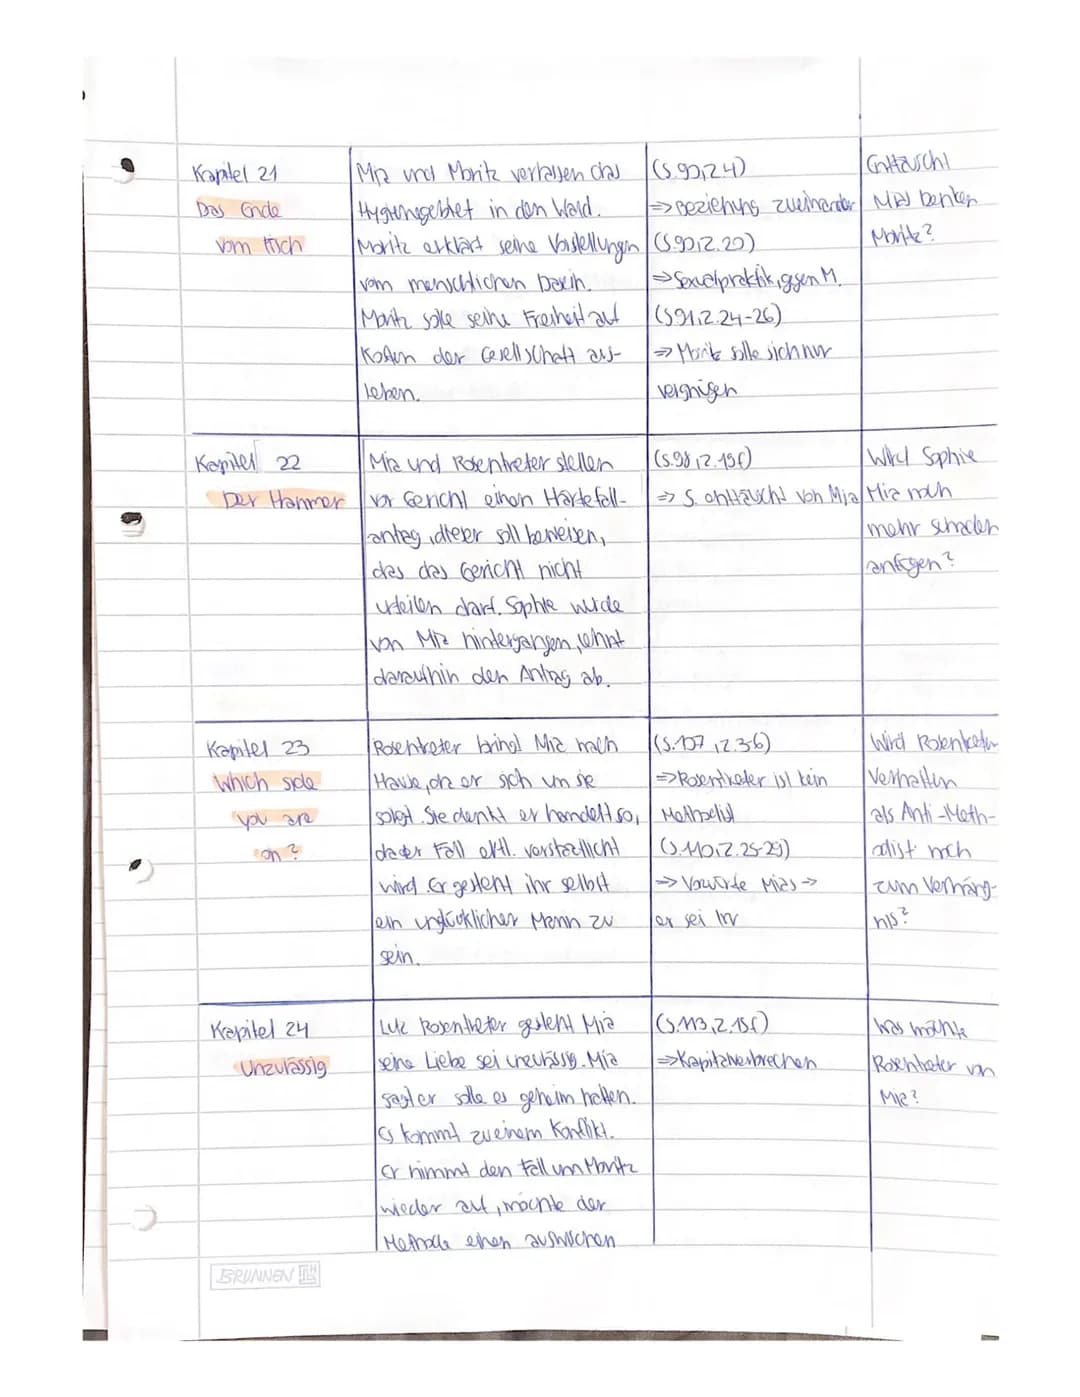 Kapitel 21
Das Ende
vom Fisch
Mia und Moritz verlassen das
Hygienegebiet in den Wald.
Moritz erklärt seine Vorstellungen
vom menschlichen Dasein.
Moritz solle seine Freiheit auf
Kosten der Gesellschaft aus-
leben.
(S.90,Z.4)
=> Beziehung zueinander
(S.90,Z.20)
=> Sexualpraktik, gegen M.
(S.91,Z.24-26)
=> Moritz solle sich nur
vergnügen
Enttäuscht
Mias Denken
Moritz?
Kapitel 22
Der Hammer
Mia und Rosentreter stellen
vor Gericht einen Härtefall-
antrag, dieser soll beweisen,
das das Gericht nicht
urteilen darf. Sophie wurde
von Mia hintergangen, lehnt
daraufhin den Antrag ab.
(S.98,Z.19f)
=> S. enttäuscht von Mia
Wird Sophie
Mia noch
mehr schaden
anfügen?
Kapitel 23
Which side
you are
on?
Rosentreter bringt Mia nach
Hause, da er sich um sie
sorgt. Sie denkt er handelt so,
da der Fall öfftl. verstaatlicht
wird. Er gesteht ihr selbst
ein unglücklicher Mann zu
sein.
(S.107,Z.3-6)
=> Rosentreter ist kein
Methodist
(S.110,Z.25-29)
=> Vorwürfe Mias ->
er sei irr
Wird Rosentreter
Verhalten
als Anti-Meth-
odist noch
zum Verhäng-
nis?
Kapitel 24
Unzulässig
Lutz Rosentreter gesteht Mia
seine Liebe sei unzulässig. Mia
sagt er solle es geheim halten.
Es kommt zu einem Konflikt.
Er nimmt den Fall um Moritz
wieder auf, möchte der
Methode einen auswischen
(S.113,Z.15f)
=> Kapitalverbrechen
Was möchte
Rosentreter von
Mia?
BRUNNEN